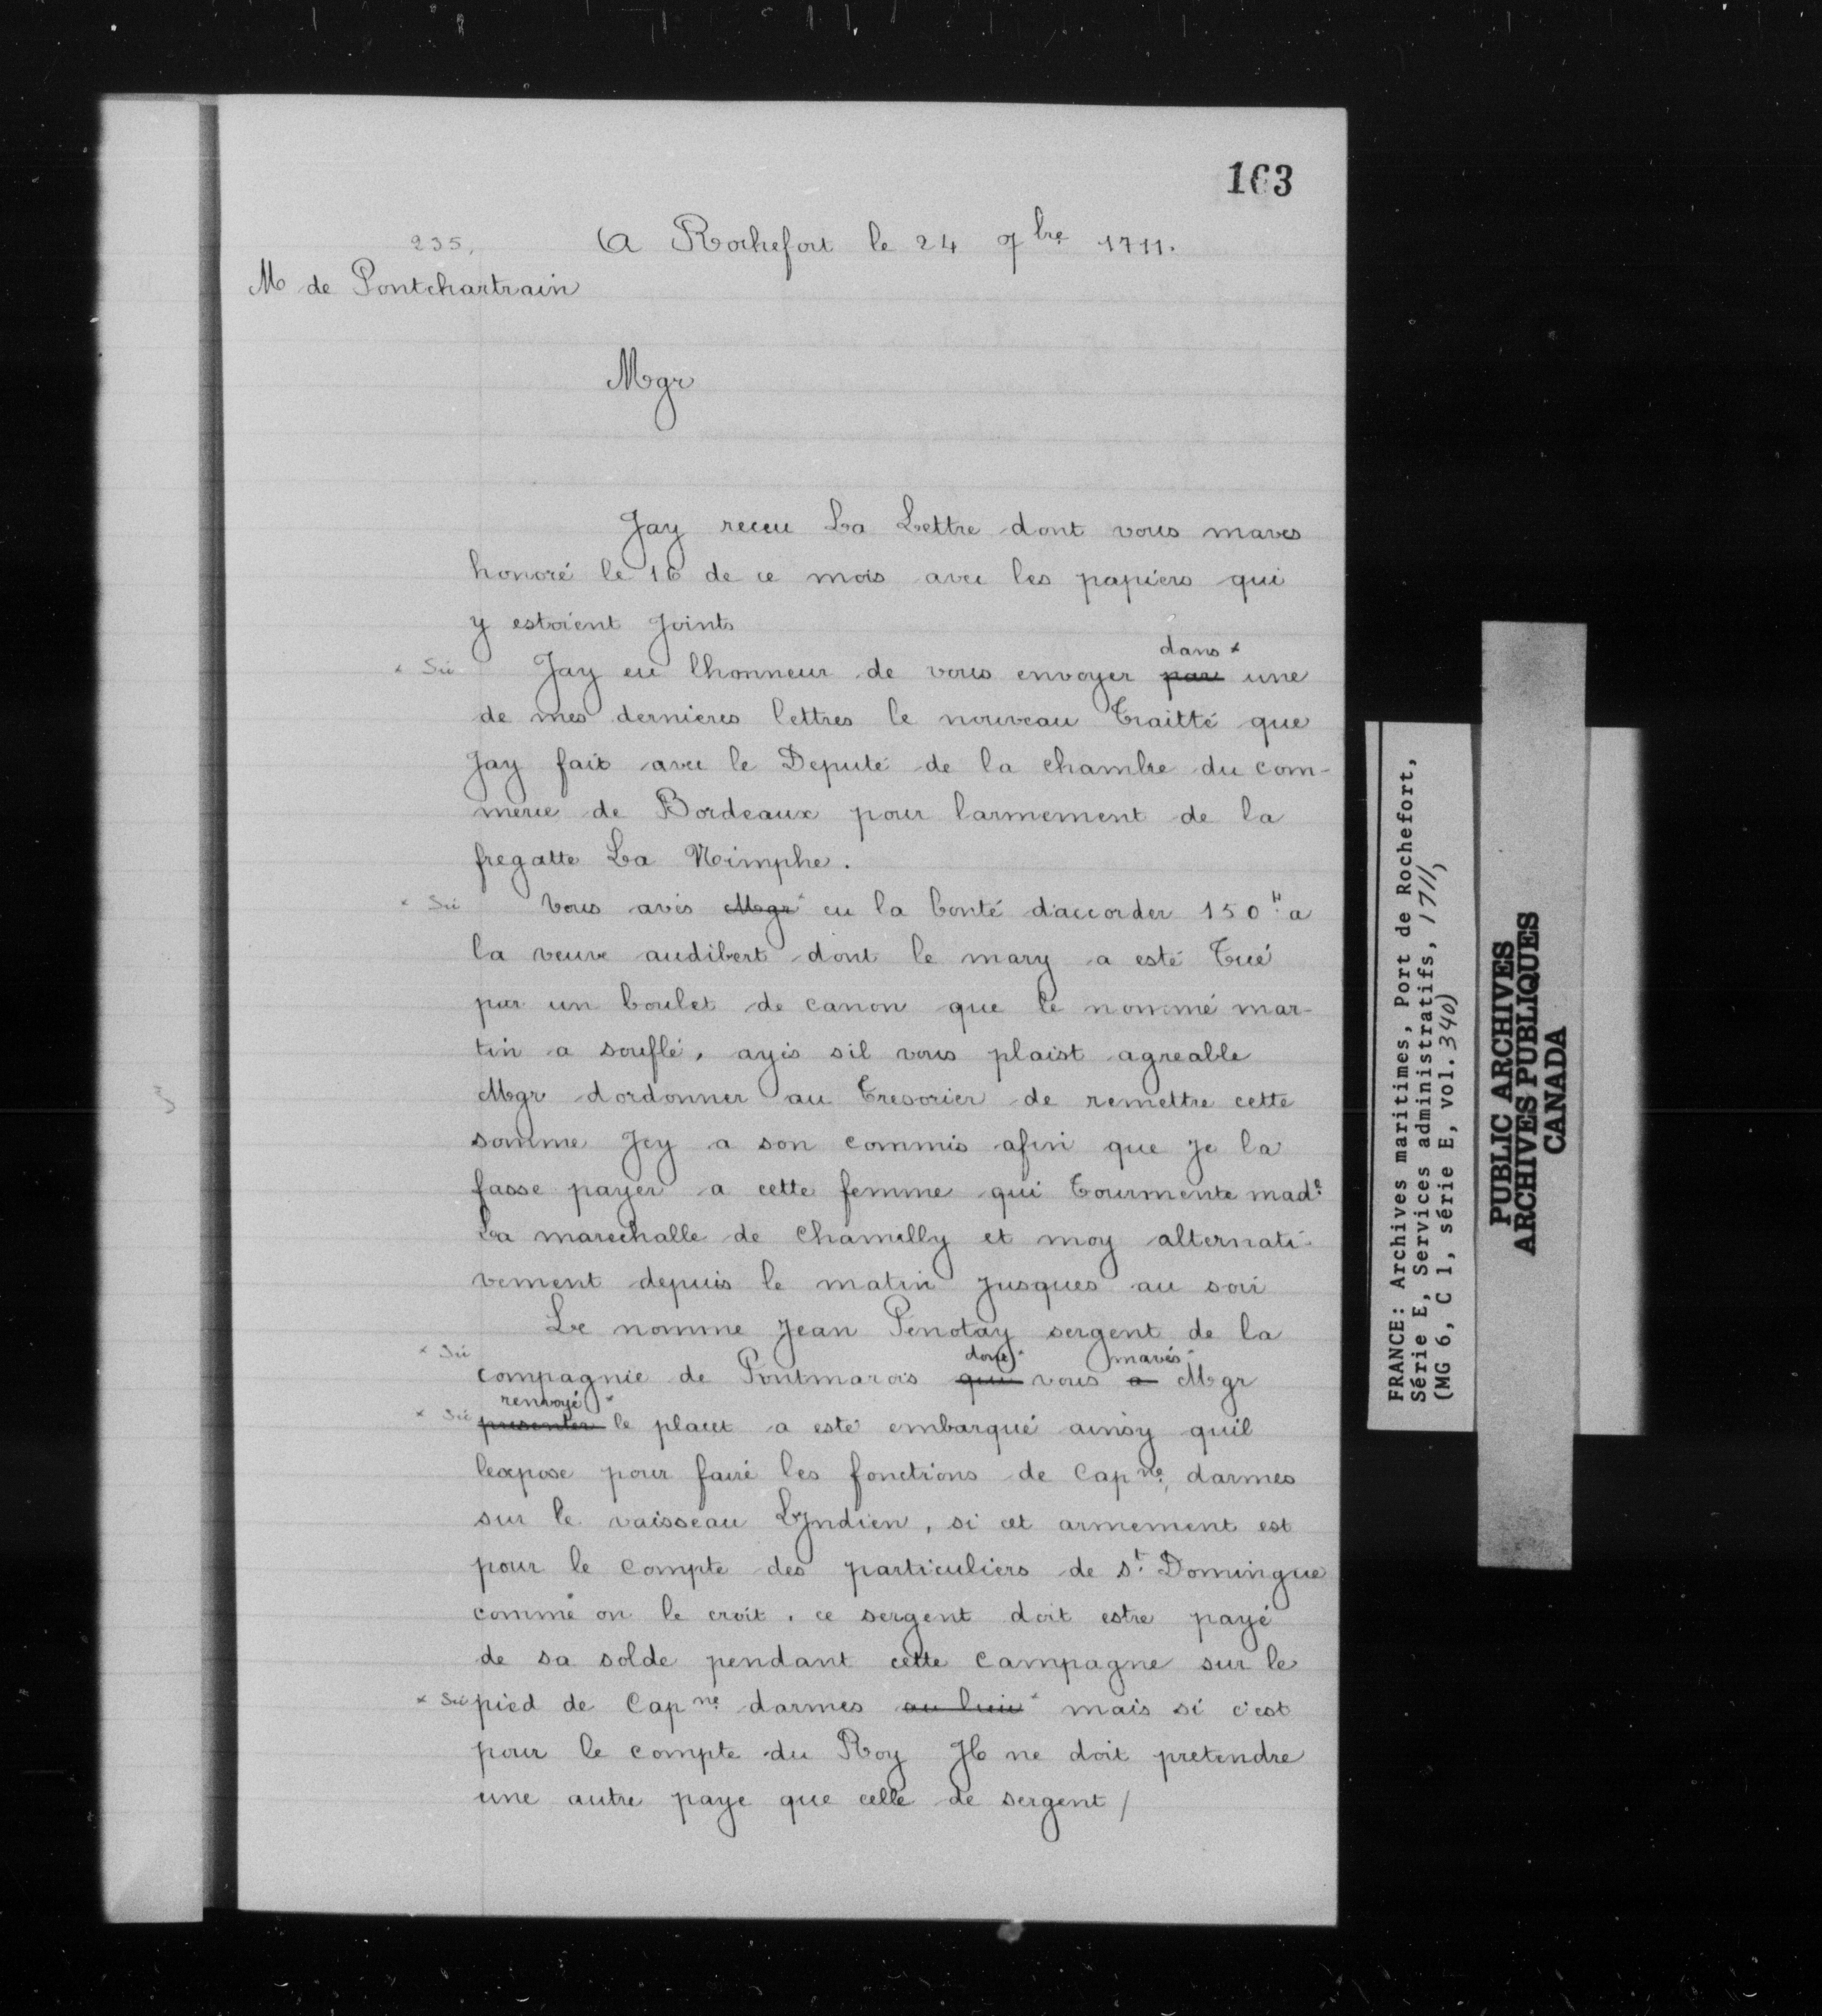 163
235.
A Rochefort le 24 7bre 1711.
M de Pontchartrain
Mgr
Jay receu La Lettre dont vous maves
honoré le 16 de ce mois avec les papiers qui
y estoient Joints
dans x
x Sic Jay eu lhonneur de vous envoyer par une
de mes dernieres lettres le nouveau Traitté que
Jay fait avec le Deputé de la chambre du com-
merce de Bordeaux pour larmement de la
fregatte La Nimphe.
x Sic Vous avés Mgr x eu la bonté d'accorder 150ll a
la veuve audibert dont le mary a esté Tué
par un boulet de canon que le nommé mar-
tin a souflé, ayés sil vous plaist agreable
Mgr dordonner au Tresorier de remettre cette
somme Jcy a son commis afin que je la
fasse payer a cette femme qui Tourmente made
La marechalle de Chamilly et moy alternati-
vement depuis le matin jusques au soir
Le nomme Jean Penotay sergent de la
x Sic donc x mavés x
compagnie de Pontmarois que vous a Mgr
renvoyé x
x Sic presenter le placet a esté embarqué ainsy quil
lexpose pour faire les fonctions de Capne darmes
sur le vaisseau LJndien, si cet armement est
pour le compte des particuliers de st Domingue
comme on le croit, ce sergent doit estre payé
de sa solde pendant cette campagne sur le
x Sic pied de Capne darmes au lieu x mais si c'est
pour le compte du Roy Jl ne doit pretendre
une autre paye que celle de sergent /
FRANCE: Archives maritimes, Port de Rochefort,
Série E, Services administratifs, 1711,
(MG 6, C 1, série E, vol. 340)
PUBLIC ARCHIVES
ARCHIVES PUBLIQUES
CANADA